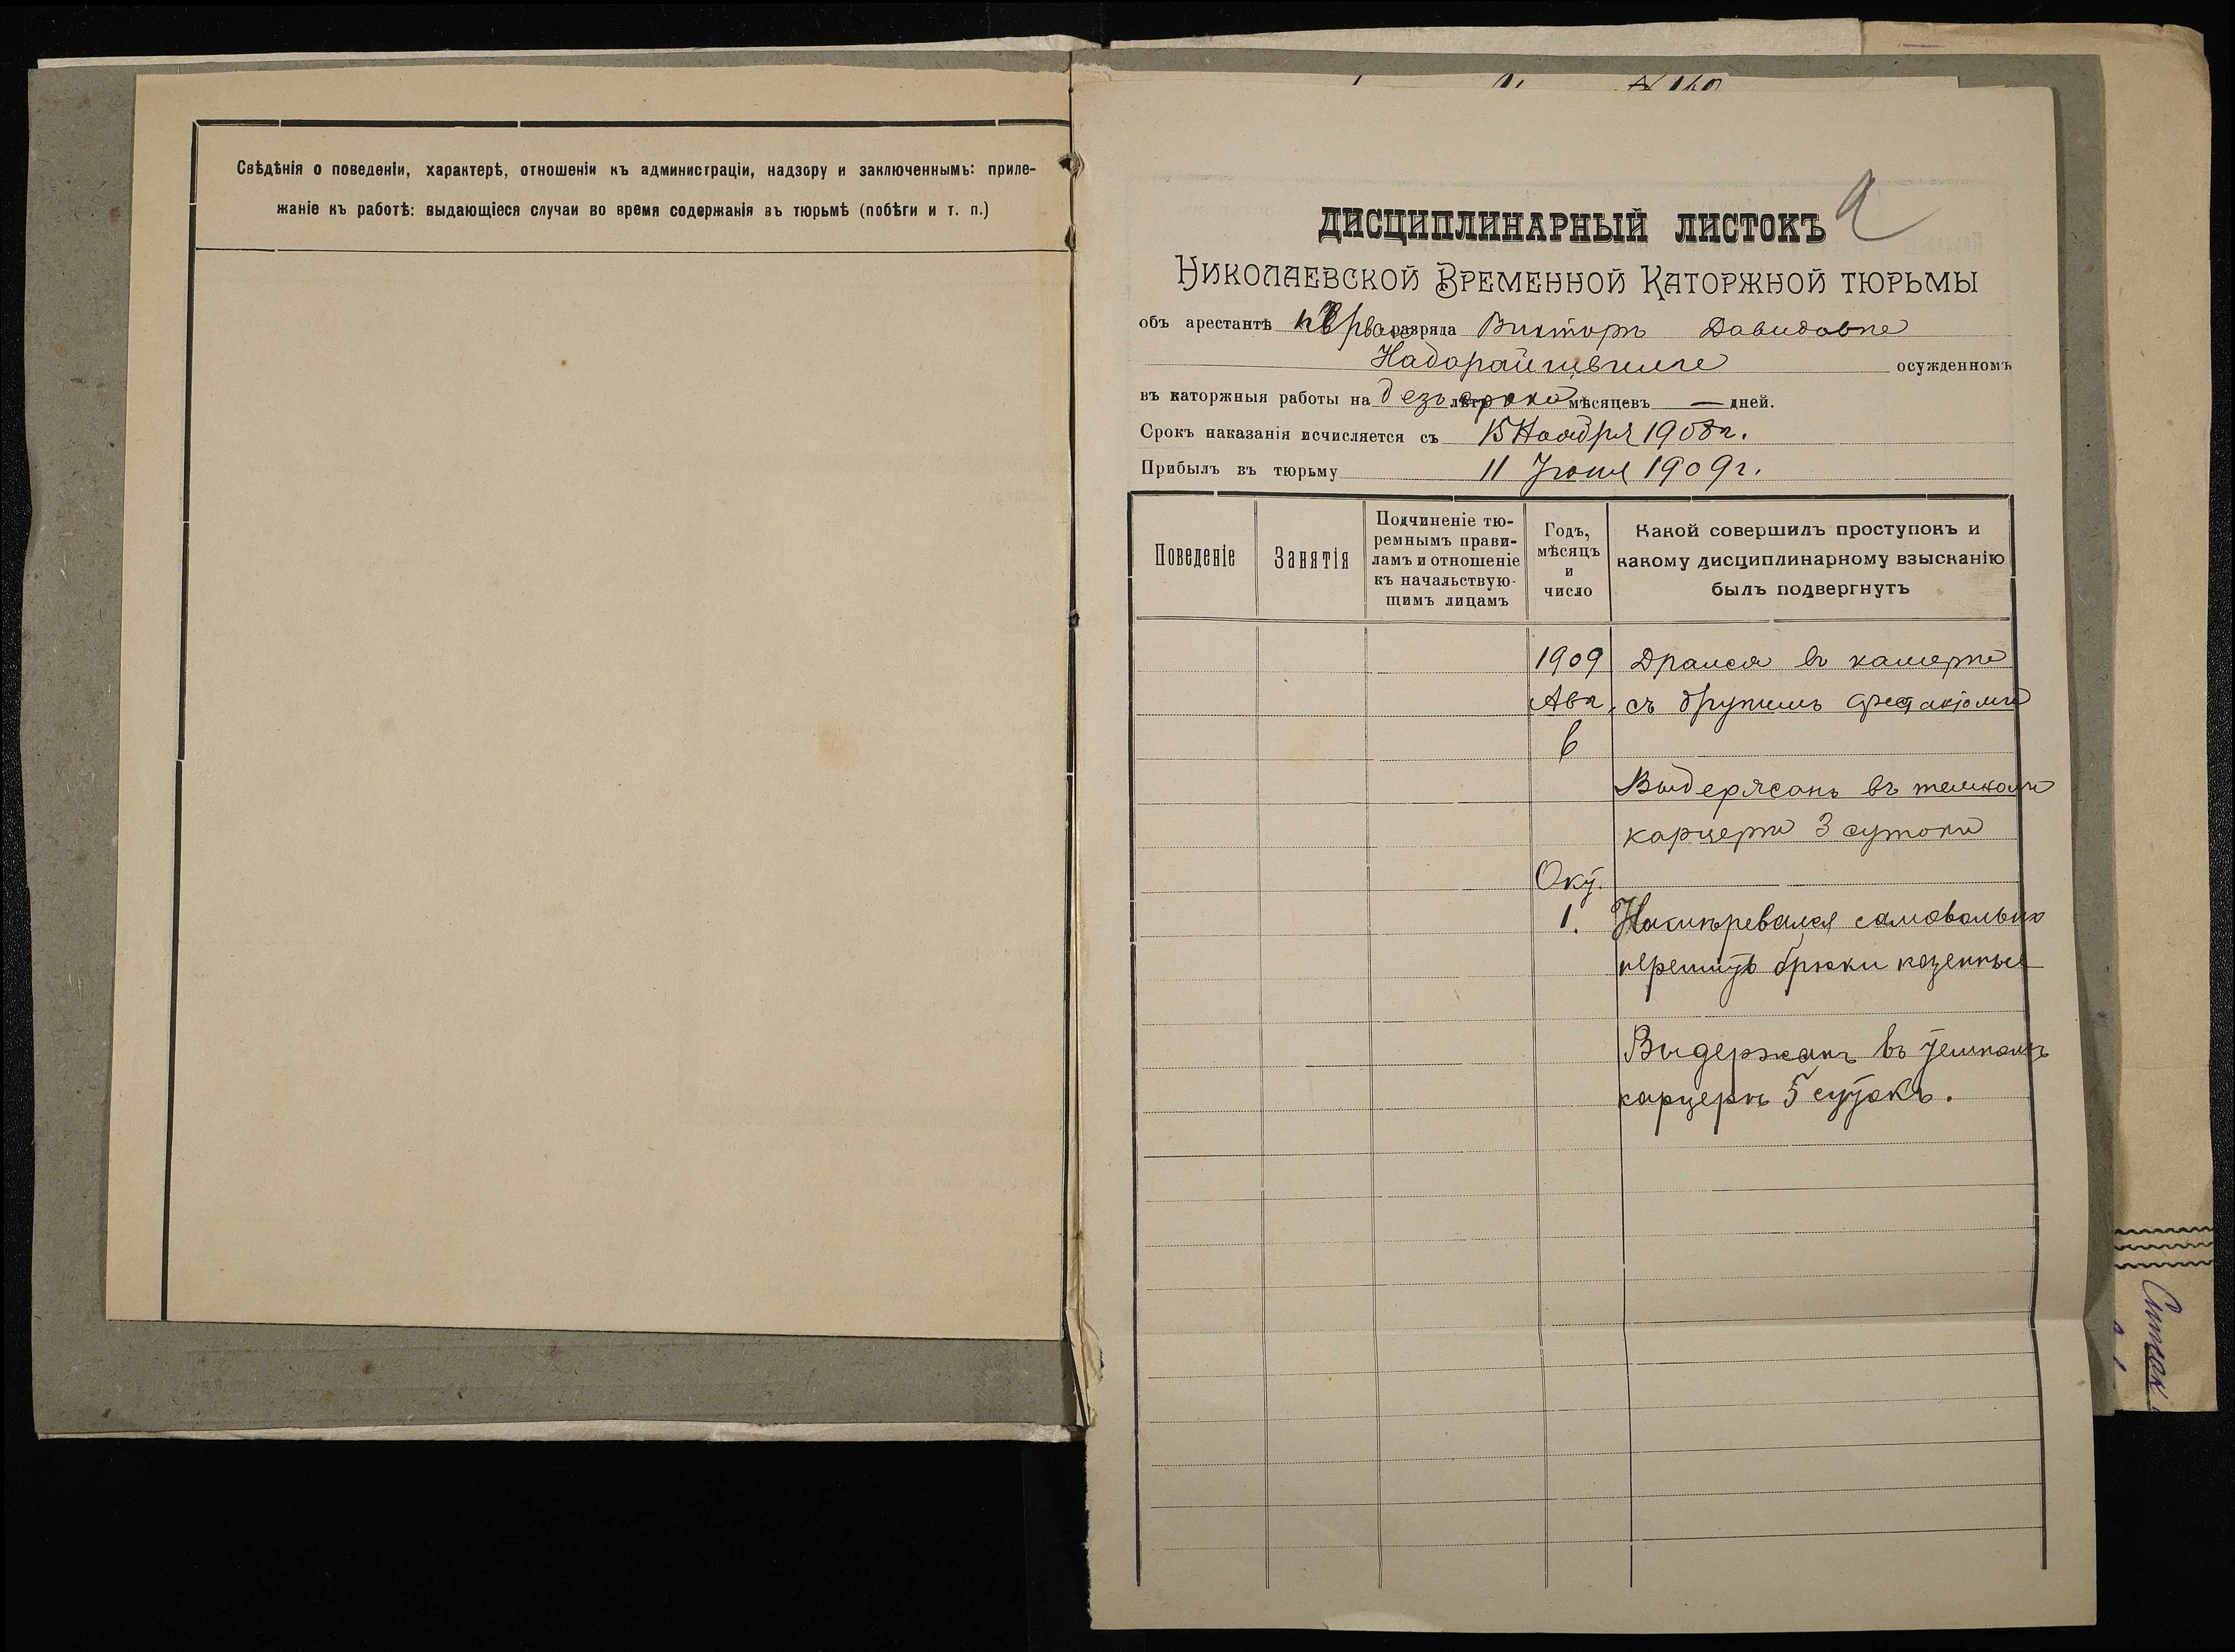 Свѣдѣнія о поведеніи, характерѣ, отношеніи къ администраціи, надзору и заключеннымъ: приле-
жаніе къ работѣ: выдающіеся случаи во время содержанія въ тюрьмѣ (побѣги и т. п.)
ДИСЦИПЛИНАРНЫЙ ЛИСТОКЪ
НИКОЛАЕВСКОЙ ВРЕМЕННОЙ КАТОРЖНОЙ ТЮРЬМЫ
объ арестантѣ разряда Викторѣ Давидовѣ
Надарайшвили осужденномъ
въ каторжныя работы на безъ лѣтъ срока мѣсяцевъ — дней.
Срокъ наказанія исчисляется съ 15 Ноября 1908 г.
Прибылъ въ тюрьму 11 Іюня 1909 г.
Поведеніе
Занятія
Подчиненіе тю-
ремнымъ прави-
ламъ и отношеніе
къ начальствую-
щимъ лицамъ
Годъ,
мѣсяцъ
и
число
Какой совершилъ проступокъ и
какому дисциплинарному взысканію
былъ подвергнутъ
1909 Дрался въ камерѣ
Авг. съ другимъ
6
Выдержанъ въ темномъ
карцерѣ 3 сутокъ
Окт.
1. Намѣревался самовольно
перешить брюки казенныя
Выдержанъ въ темномъ
карцерѣ 5 сутокъ.